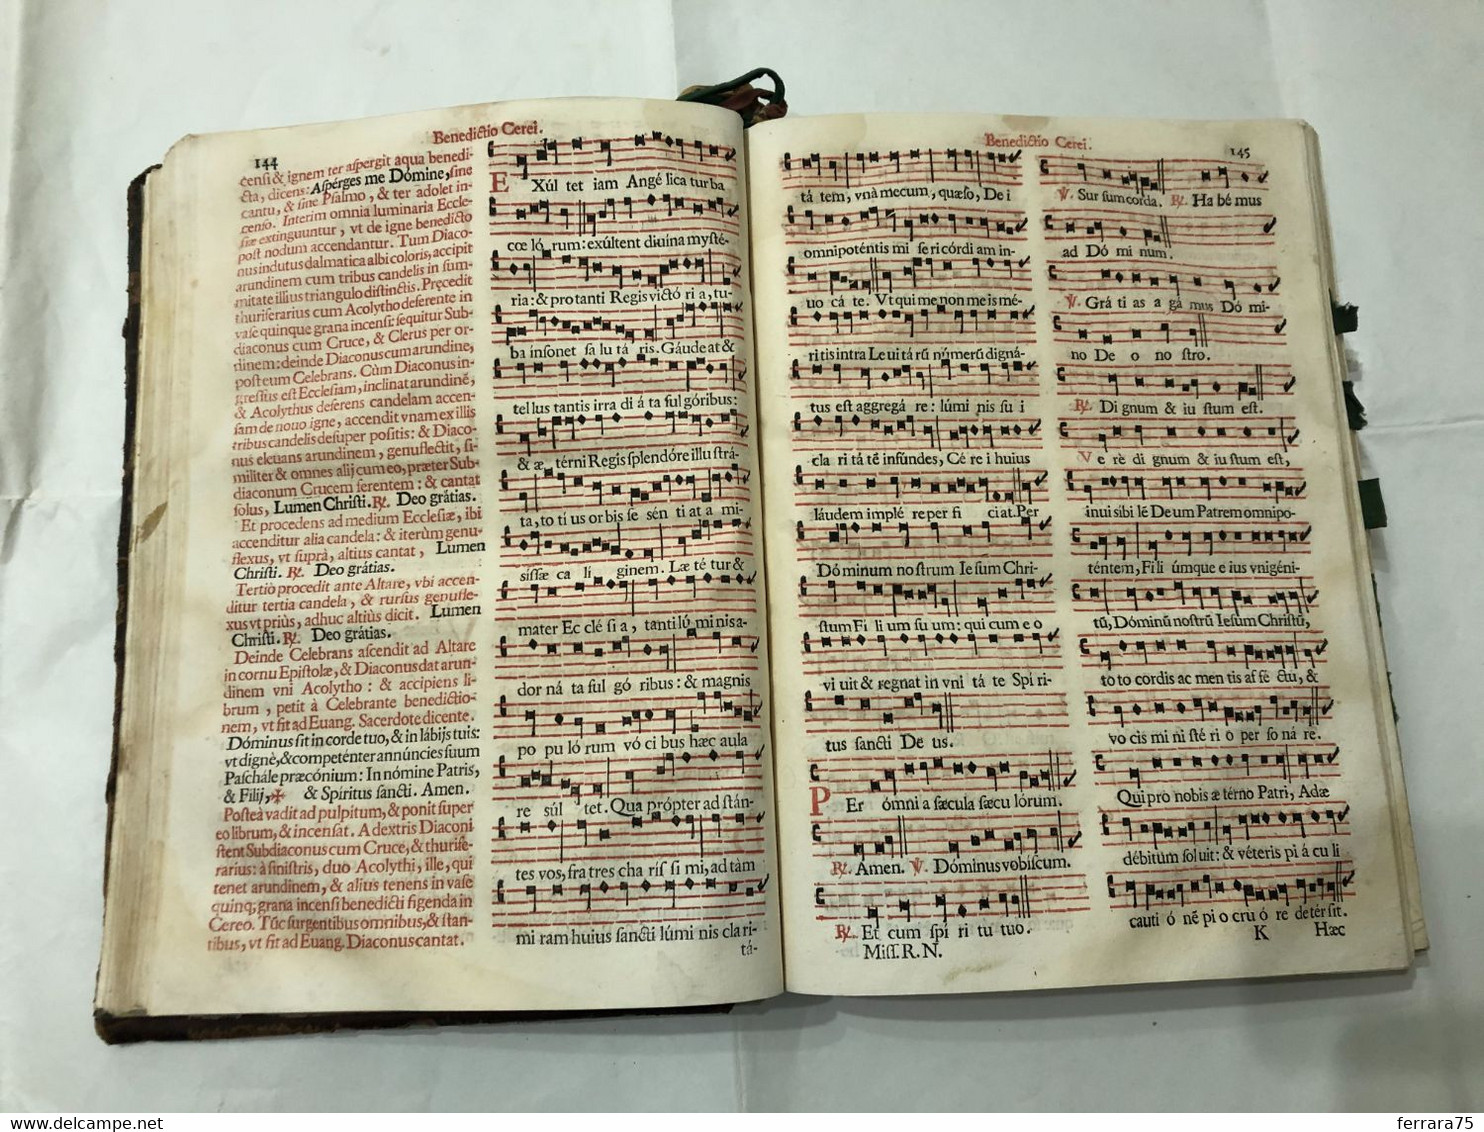 144
Benedictio Cerei.
censi & ignem ter aspergit aqua benedi-
cta, dicens: Aspérges me Dómine, sine
cantu, & sine Psalmo, & ter adolet in-
censo. Interim omnia luminaria Eccle-
siæ extinguuntur, vt de igne benedicto
post nodum accendantur. Tum Diaco-
nus indutus dalmatica albi coloris, accipit
arundinem cum tribus candelis in sum-
mitate illius triangulo distinctis. Præcedit
thuriferarius cum Acolytho deferente in
vase quinque grana incensi: sequitur Sub-
diaconus cum Cruce, & Clerus per or-
dinem: deinde Diaconus cum arundine,
post eum Celebrans. Cùm Diaconus in-
gressus est Ecclesiam, inclinat arundinē,
& Acolythus deferens candelam accen-
sam de nouo igne, accendit vnam ex illis
tribus candelis desuper positis: & Diaco-
nus eleuans arundinem, genuflectit, si-
militer & omnes alij cum eo, præter Sub-
diaconum Crucem ferentem: & cantat
solus, Lumen Christi. ℟. Deo grátias.
Et procedens ad medium Ecclesiæ, ibi
accenditur alia candela: & iterùm genu-
flexus, vt suprà, altius cantat, Lumen
Christi. ℟. Deo grátias.
Tertiò procedit ante Altare, vbi accen-
ditur tertia candela, & rursus genufle-
xus vt priùs, adhuc altiùs dicit. Lumen
Christi. ℟. Deo grátias.
Deinde Celebrans ascendit ad Altare
in cornu Epistolæ, & Diaconus dat arun-
dinem vni Acolytho: & accipiens li-
brum, petit à Celebrante benedictio-
nem, vt fit ad Euang. Sacerdote dicente.
Dóminus sit in corde tuo, & in lábijs tuis:
vt dignè, & competénter annúncies suum
Paschále præcónium: In nómine Patris,
& Filij, ✠ & Spíritus sancti. Amen.
Posteà vadit ad pulpitum, & ponit super
eo librum, & incensat. A dextris Diaconi
stent Subdiaconus cum Cruce, & thurife-
rarius: à sinistris, duo Acolythi, ille, qui
tenet arundinem, & alius tenens in vase
quinq, grana incensi benedicti figenda in
Cereo. Tūc surgentibus omnibus, & stan-
tibus, vt fit ad Euang. Diaconus cantat.
E Xúl tet iam Angé lica tur ba
cœ ló rum: exúltent diuína mysté-
ria: & pro tanti Regis victó ri a, tu-
ba insonet sa lu tá ris. Gáude at &
tel lus tantis irra di á ta ful góribus:
& æ térni Regis splendóre illu strá-
ta, to tí us orbis se sén ti at a mi-
sísse ca lí ginem. Læ té tur &
mater Ec clé si a, tanti lú mi nis a-
dor ná ta ful gó ribus: & magnis
po pu ló rum vó ci bus hæc aula
re súl tet. Qua própter ad stán-
tes vos, fra tres cha rís si mi, ad tàm
mi ram huius sancti lúmi nis cla ri-
tá-
Benedictio Cerei.
145
tá tem, vnà mecum, quæso, De i
omnipoténtis mi se ri córdi am in-
uo cá te. Vt qui me non me is mé-
ri tis intra Le uí tá rū númerū digná-
tus est aggregá re: lúmi nis su i
cla ri tá tē infúndes, Cé re i huius
láudem implé re per fí ci at. Per
Dó minum no strum Ie sum Chri-
stum Fí li um su um: qui cum e o
vi uit & regnat in vni tá te Spí ri-
tus sancti De us.
P Er ómni a sæcula sæcu lórum.
℟. Amen. ℣. Dóminus vobíscum.
℟. Et cum spí ri tu tuo.
Miss. R. N.
℣. Sur sum corda. ℟. Ha bé mus
ad Dó mi num.
℣. Grá ti as a gá mus Dó mi-
no De o no stro.
℟. Di gnum & iu stum est.
Ve rè di gnum & iu stum est,
inui sí bi lē De um Patrem omnipo-
téntem, Fí li úmque e ius vnigéni-
tū, Dóminū nostrū Iesum Christū,
to to cordis ac men tis af fé ctu, &
vo cis mi ni sté ri o per so ná re.
Qui pro nobis æ térno Patri, Adæ
débitum sol uit: & véteris pi á cu li
cauti ó nē pi o cru ó re detér sit.
K
Hæc
ferrara75